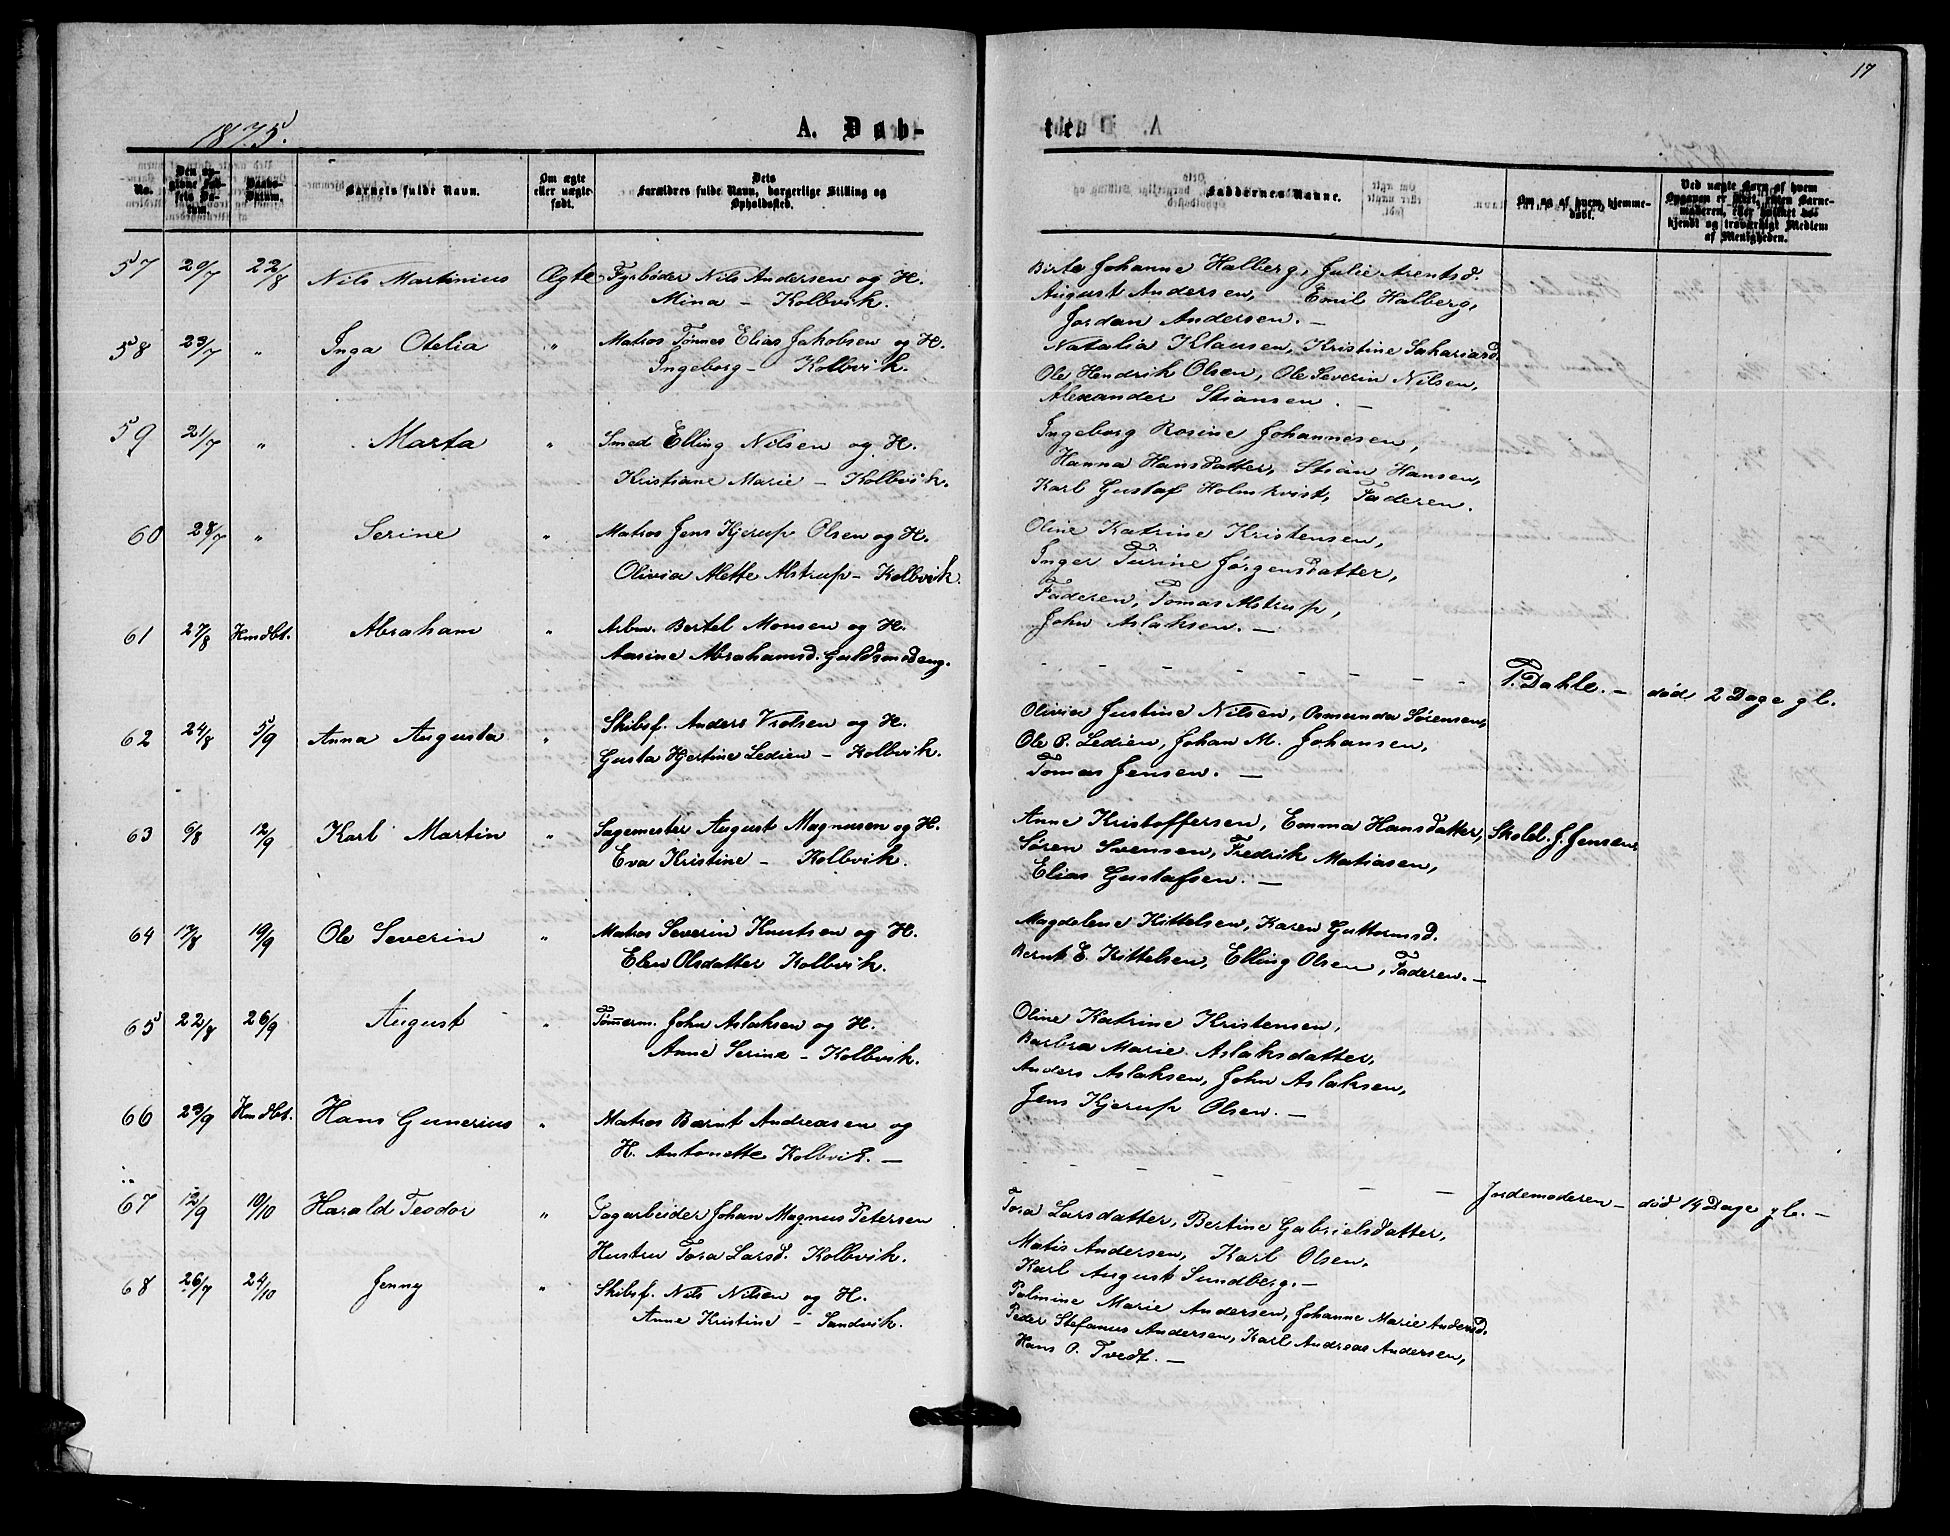 17
1875.
A. Døb-
te
No.
Den opgivne Fødsels Datum.
Daabs-Datum.
Barnets fulde Navn.
Om ægte eller uægte født.
Dets Forældres fulde Navn, borgerlige Stilling og Opholdssted.
Faddernes Navne.
Om og af hvem hjemmedøbt.
Ved uægte Børn af hvem Opgaven er skeet, enten Barnemoderen, eller hvilket kjendt og troværdigt Medlem af Menigheden.
57 20/7 22/8 Nils Martinius Ægte Fyrbøder Nils Andersen og H.
Mina – Kolbvik.
Birte Johanne Halberg, Julie Arentsd.
August Andersen, Emil Halberg,
Jordan Andersen. –
58 23/7 " Inga Otelia " Matros Tønnes Elias Jakobsen og H.
Ingeborg – Kolbvik.
Natalia Klausen, Kristine Sakariasd.
Ole Hendrik Olsen, Ole Severin Nilsen,
Alexander Stiansen. –
59 21/7 " Marta " Smed Elling Nilsen og H.
Kristiane Marie – Kolbvik.
Ingeborg Rosine Johannesen,
Hanna Hansdatter, Stian Hansen,
Karl Gustaf Holmkvist, Faderen.
60 28/7 " Serine " Matros Jens Kjerup Olsen og H.
Olivia Alette Alstrup – Kolbvik.
Oline Katrine Kristensen,
Inger Turine Jørgensdatter,
Faderen, Tomas Alstrup,
John Aslaksen. –
61 27/8 Hmdbt. Abraham " Arbm. Bertel Monsen og H.
Aasine Abrahamsd. Guldsmedeng.
– – – – – – – – T. Dahle. – død 2 Dage gl.
62 24/8 5/9 Anna Augusta " Skibsf. Anders Violsen og H.
Gusta Hjertine Ledien – Kolbvik.
Olivia Justine Nilsen, Osmunda Sørensen,
Ole P. Ledien, Johan M. Johansen,
Tomas Jensen. –
63 6/8 12/9 Karl Martin " Sagemester August Magnusen og H.
Eva Kristine – Kolbvik.
Anne Kristoffersen, Emma Hansdatter, Skoleh. J. Jensen.
Søren Svensen, Fredrik Matiasen,
Elias Gustafsen. –
64 17/8 19/9 Ole Severin " Matros Severin Knutsen og H.
Elen Olsdatter Kolbvik.
Magdelene Kittelsen, Karen Guttormsd.
Bernt E. Kittelsen, Elling Olsen, Faderen. –
65 22/8 26/9 August " Tømmerm. John Aslaksen og H.
Anne Serine – Kolbvik.
Oline Katrine Kristensen,
Barbra Marie Aslaksdatter,
Anders Aslaksen, John Aslaksen,
Jens Kjerup Olsen. –
66 23/9 Hmdbt. Hans Gunerius " Matros Bernt Andreasen og
H. Antonette Kolbvik. –
– – – – – – – – Jordemoderen – død 14 Dage gl. –
67 12/9 10/10 Harald Teodor " Sagarbeider Johan Magnus Petersen
Hustru Tora Larsd. Kolbvik.
Tora Larsdatter, Bertine Gabrielsdatter,
Matis Andersen, Karl Olsen,
Karl August Sundberg. –
68 26/7 24/10 Jenny " Skibsf. Nils Nilsen og H.
Anne Kristine – Sandvik.
Palmine Marie Andersen, Johanne Marie Andersd.
Peder Stefanus Andersen, Karl Andreas Andersen,
Hans P. Tvedt. –